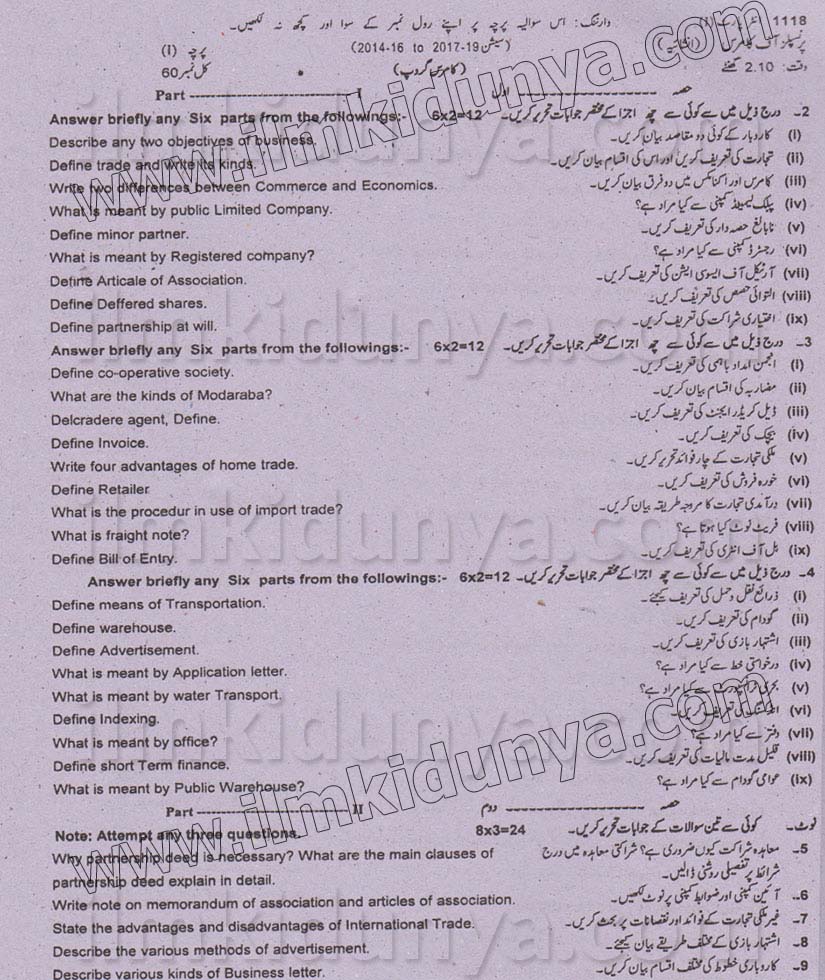 1118 وارننگ: اس سوالیہ پرچہ پر اپنے رول نمبر کے سوا اور کچھ نہ لکھیں۔
پرنسپلز آف کامرس (انشائیہ) (سیشن 2014-16 to 2017-19) پرچہ (I)
وقت: 2.10 گھنٹے (کامرس گروپ) کل نمبر 60
Part ---------- I حصہ ---------- اول
Answer briefly any Six parts from the followings:- 6x2=12 2۔ درج ذیل میں سے کوئی سے چھ اجزا کے مختصر جوابات تحریر کریں۔
Describe any two objectives of business. (i) کاروبار کے کوئی دو مقاصد بیان کریں۔
Define trade and write its kinds. (ii) تجارت کی تعریف کریں اور اس کی اقسام بیان کریں۔
Write two differences between Commerce and Economics. (iii) کامرس اور اکنامکس میں دو فرق بیان کریں۔
What is meant by public Limited Company. (iv) پبلک لیمیٹڈ کمپنی سے کیا مراد ہے؟
Define minor partner. (v) نابالغ حصہ دار کی تعریف کریں۔
What is meant by Registered company? (vi) رجسٹرڈ کمپنی سے کیا مراد ہے؟
Define Articale of Association. (vii) آرٹیکل آف ایسوسی ایشن کی تعریف کریں۔
Define Deffered shares. (viii) التوائی حصص کی تعریف کریں۔
Define partnership at will. (ix) اختیاری شراکت کی تعریف کریں۔
Answer briefly any Six parts from the followings:- 6x2=12 3۔ درج ذیل میں سے کوئی سے چھ اجزا کے مختصر جوابات تحریر کریں۔
Define co-operative society. (i) انجمن امداد باہمی کی تعریف کریں۔
What are the kinds of Modaraba? (ii) مضاربہ کی اقسام بیان کریں۔
Delcradere agent, Define. (iii) ڈیل کریڈر ایجنٹ کی تعریف کریں۔
Define Invoice. (iv) بیجک کی تعریف کریں۔
Write four advantages of home trade. (v) ملکی تجارت کے چار فوائد تحریر کریں۔
Define Retailer (vi) خوردہ فروش کی تعریف کریں۔
What is the procedur in use of import trade? (vii) درآمدی تجارت کا مروجہ طریقہ بیان کریں۔
What is fraight note? (viii) فریٹ نوٹ کیا ہوتا ہے؟
Define Bill of Entry. (ix) بل آف انٹری کی تعریف کریں۔
Answer briefly any Six parts from the followings:- 6x2=12 4۔ درج ذیل میں سے کوئی سے چھ اجزا کے مختصر جوابات تحریر کریں۔
Define means of Transportation. (i) ذرائع نقل و حمل کی تعریف کیجئے۔
Define warehouse. (ii) گودام کی تعریف کریں۔
Define Advertisement. (iii) اشتہار بازی کی تعریف کریں۔
What is meant by Application letter. (iv) درخواستی خط سے کیا مراد ہے؟
What is meant by water Transport. (v) بحری ٹرانسپورٹ سے کیا مراد ہے؟
Define Indexing. (vi) انڈیکسنگ کی تعریف کریں۔
What is meant by office? (vii) دفتر سے کیا مراد ہے؟
Define short Term finance. (viii) قلیل مدت مالیات کی تعریف کریں۔
What is meant by Public Warehouse? (ix) عوامی گودام سے کیا مراد ہے؟
Part ---------- II حصہ ---------- دوم
Note: Attempt any three questions. 8x3=24 نوٹ۔ کوئی سے تین سوالات کے جوابات تحریر کریں۔
Why partnership deed is necessary? What are the main clauses of 5۔ معاہدہ شراکت کیوں ضروری ہے؟ شراکتی معاہدہ میں درج
partnership deed explain in detail. شرائط پر تفصیلی روشنی ڈالیں۔
Write note on memorandum of association and articles of association. 6۔ آئین کمپنی اور ضوابط کمپنی پر نوٹ لکھیں۔
State the advantages and disadvantages of International Trade. 7۔ غیر ملکی تجارت کے فوائد اور نقصانات پر بحث کریں۔
Describe the various methods of advertisement. 8۔ اشتہار بازی کے مختلف طریقے بیان کیجئے۔
Describe various kinds of Business letter. 9۔ کاروباری خطوط کی مختلف اقسام بیان کریں۔
www.ilmkidunya.com
www.ilmkidunya.com
ilmkidunya.com
ilmkidunya.com
ilmkidunya.com
ilmkidunya.com
ilmkidunya.com